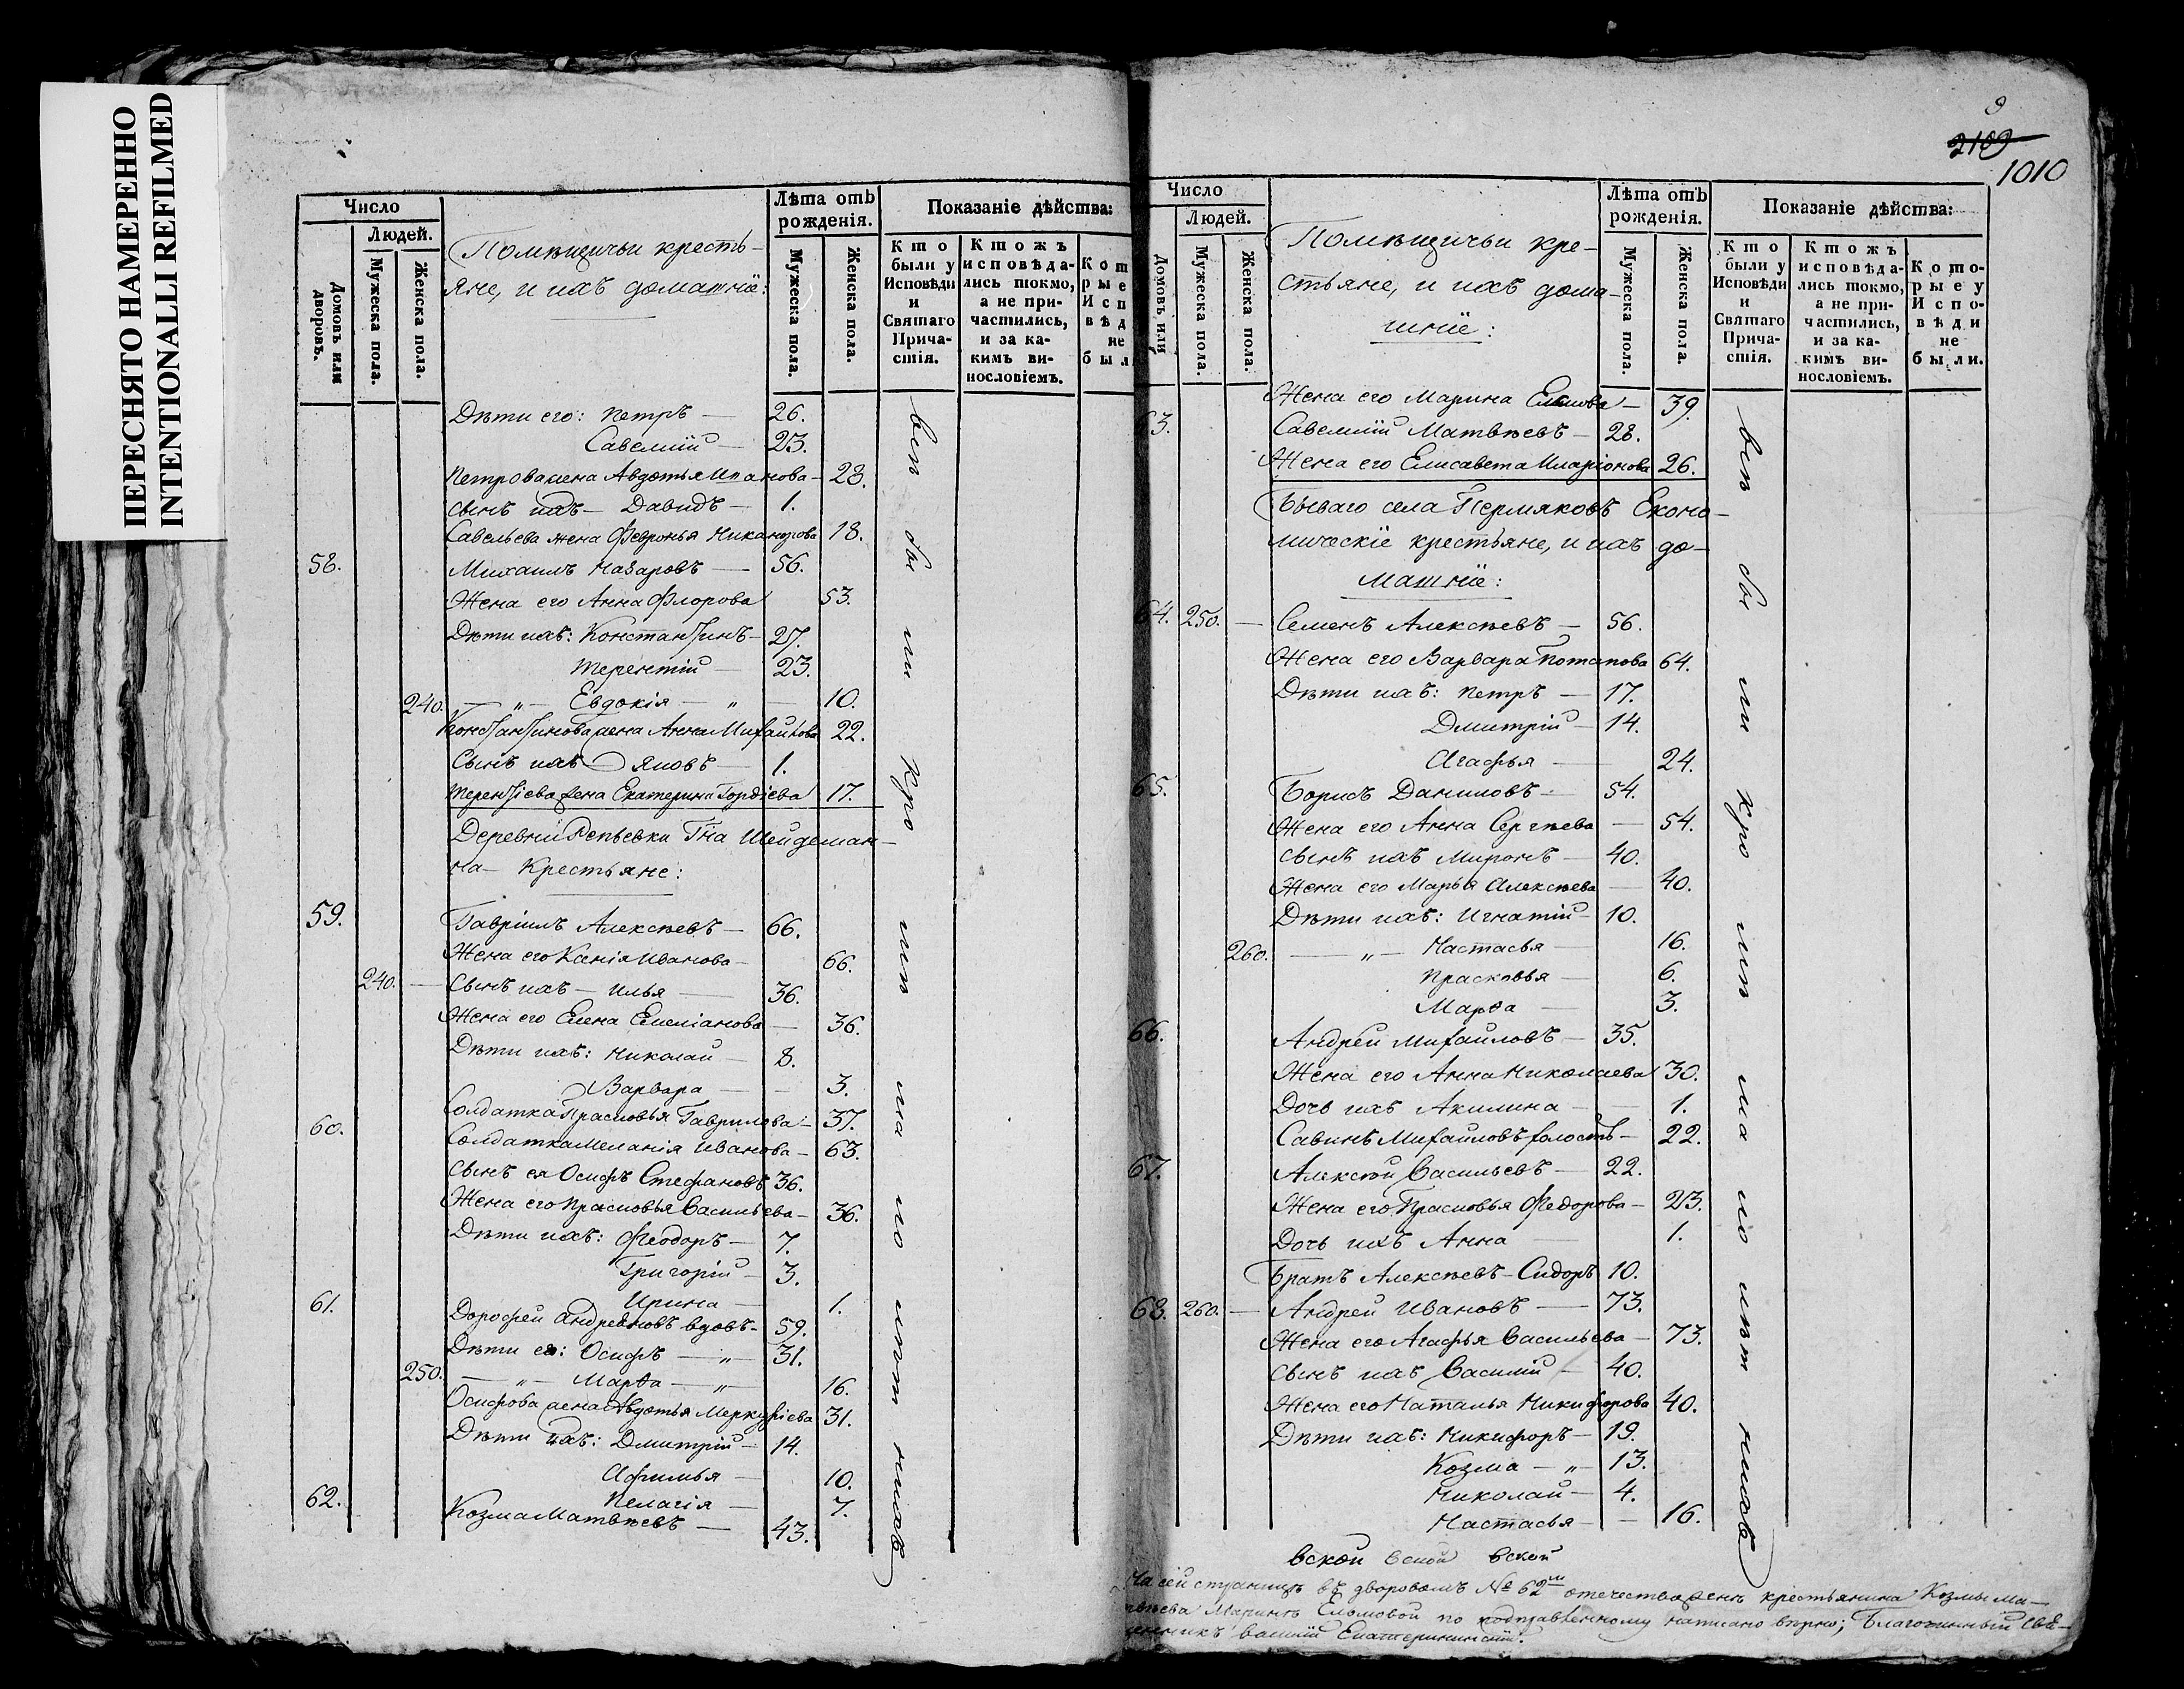 ПЕРЕСНЯТО НАМЕРЕННО
INTENTIONALLI REFILMED
Число
Людей.
Домовъ или дворовъ.
Мужеска пола.
Женска пола.
Помѣщичьи кресть-
яне, и ихъ домашніе:
Лѣта отъ рожденія.
Мужеска пола.
Женска пола.
Показаніе дѣйства:
Кто были у Исповѣди и Святаго Прича-стія.
Ктожъ исповѣда-лись токмо, а не при-частились, и за ка-кимъ ви-нословіемъ.
Кот рые Исп вѣд не был
Дѣти его: Петръ — 26.
Савелий — 23.
Петрова жена Авдотья Ипанова — 28.
Сынъ ихъ — Давидъ — 1.
Савельева жена Февронья Никанорова 18.
58. Михаилъ Назаровъ — 56.
Жена его Анна Флорова 53.
Дѣти ихъ: Константинъ — 27.
Терентій — 23.
240. — „ — Евдокія — „ — 10.
Константинова жена Анна Михайлова 22.
Сынъ ихъ Яковъ — 1.
Терентіева жена Екатерина Гордіева 17.
Деревни Репьевки Гна Шейдеман-
на — Крестьяне:
59. Гавріилъ Алексѣевъ — 66.
Жена его Ксенія Иванова — 66.
240. — Сынъ ихъ — Илья — 36.
Жена его Елена Емеліанова — 36.
Дѣти ихъ: Николай — 8.
Варвара — 3.
Солдатка Прасковья Гаврилова — 37.
60. Солдатка Меланія Иванова — 63.
Сынъ ея Осифъ Стефановъ 36.
Жена его Прасковья Васильева — 36.
Дѣти ихъ: Феодоръ — 7.
Григорій — 3.
Ирина — 1.
61. Дорофей Андреяновъ вдовъ — 59.
Дѣти ео: Осифъ — „ — 31.
250. — „ — Марѳа — „ — 16.
Осифова жена Авдотья Меркуріева 31.
Дѣти ихъ: Дмитрій — 14.
Афимья — 10.
Пелагія — 7.
62. Козма Матвѣевъ — 43.
9
2109
1010
Число
Людей.
Домовъ или
Мужеска пола.
Женска пола.
Помѣщичьи кре-
стьяне, и ихъ дома-
шніе:
Лѣта отъ рожденія.
Мужеска пола.
Женска пола.
Показаніе дѣйства:
Кто были у Исповѣди и Святаго Прича-стія.
Ктожъ исповѣда-лись токмо, а не при-частились, и за ка-кимъ ви-нословіемъ.
Кото-рые у Испо-вѣди не были.
Жена его Марина Еломова — 39.
63. Савелий Матвѣевъ — 28.
Жена его Елисавета Иларіонова 26.
Бываго села Пермяковъ Еконо-
мическіе крестьяне, и ихъ до-
машніе:
64. 250. — Семенъ Алексѣевъ — 56.
Жена его Варвара Потапова 64.
Дѣти ихъ: Петръ — 17.
Дмитрій — 14.
Агафья — 24.
65. Борисъ Даниловъ — 54.
Жена его Анна Сергѣева — 54.
Сынъ ихъ Миронъ — 40.
Жена его Марья Алексѣева — 40.
Дѣти ихъ: Игнатій — 10.
260. — „ — Настасья — 16.
Прасковья — 6.
Марѳа — 3.
66. Андрей Михайловъ — 35.
Жена его Анна Николаева 30.
Дочь ихъ Акилина — 1.
Савинъ Михайловъ холостъ — 22.
67. Алексѣй Васильевъ — 22.
Жена его Прасковья Федорова — 23.
Дочь ихъ Анна — 1.
Братъ Алексѣевъ — Сидоръ 10.
68. 260. — Андрей Ивановъ — 73.
Жена его Агафья Васильева — 73.
Сынъ ихъ Василий — 40.
Жена его Наталья Никифорова 40.
Дѣти ихъ: Никифоръ — 19.
Козма — „ — 13.
Николай — 4.
Настасья — 16.
вской вской вской
На сей страницѣ въ дворовомъ № 62м отечество женѣ крестьянина Козмы Ма-
твѣева Маринѣ Еломовой по подправленному написано вѣрно; Благочинный Свя-
щенникъ Екатерининскій.